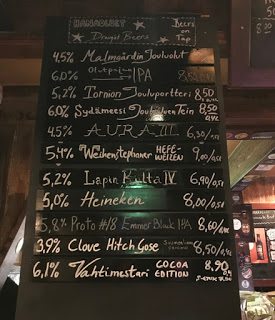 HANAOLUET
Draught Beers
Beers on Tap
4,5% Malmgårdin Jouluolut
6,0% IPA 8,50
5,2% Tornion Jouluportteri 8,50
6,0% Sydämeesi Jouluoluen Tein 8,50
4,5% AURA III 6,30/0,5l
5,4% Weihenstephaner HEFE-WEIZEN 9,00/0,5l
5,2% Lapin Kulta IV 6,90/0,5l
5,0% Heineken 8,00/0,5l
5,8% Proto #18 Emmer Black IPA 8,60/0,4l
3,9% Clove Hitch Gose 8,50/0,4l
6,1% Vahtimestari COCOA EDITION 8,90